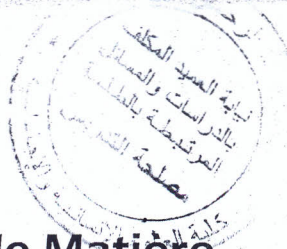 نيابة العميد المكلف
بالدراسات والمسائل
المرتبطة بالطلبة
مصلحة التدريس
كلية
de Matière